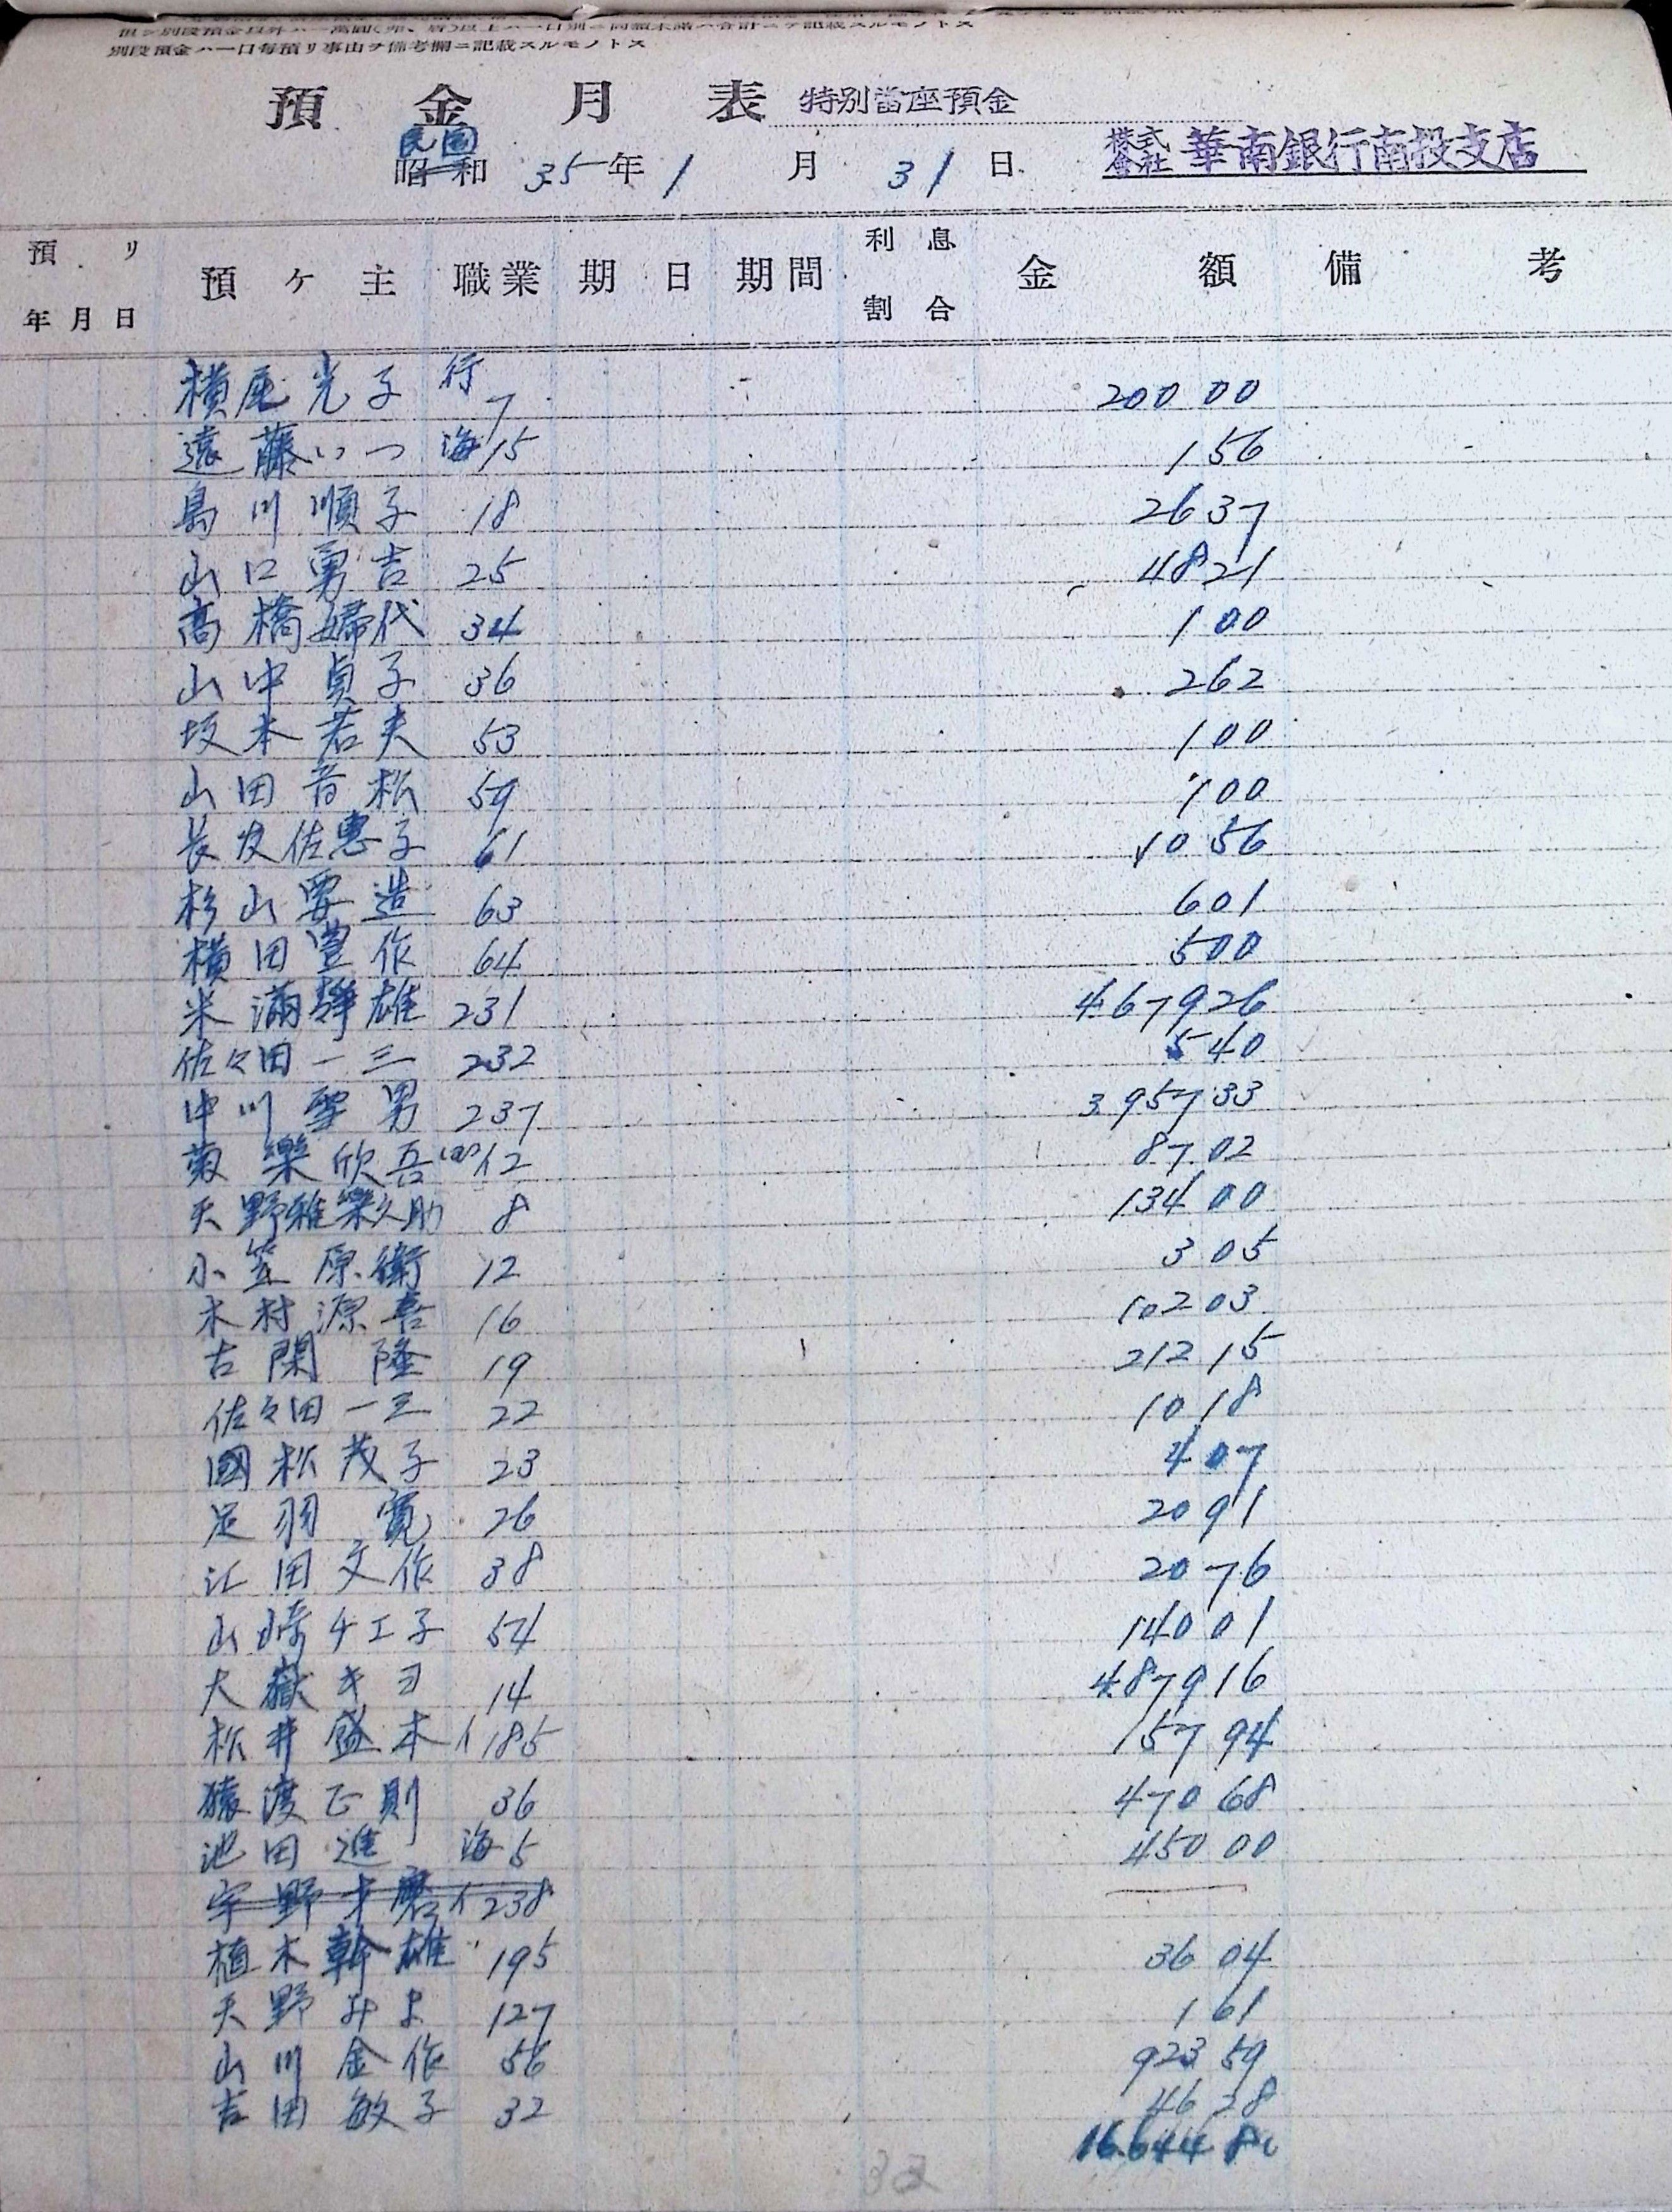 別段預金ハ一口每預リ事由ヲ備考欄ニ記載スルモノトス
預金月表 特別當座預金
民國
昭和 35年 1月 31日 株式會社 華南銀行南投支店
預リ年月日 預ケ主 職業 期日 期間 利息割合 金額 備考
橫尾光子 行7 200 00
遠藤いつ 海15 1 56
島川順子 18 26 37
山口勇吉 25 48 21
高橋婦代 34 1 00
山中貞子 36 2 62
坂本若夫 53 1 00
山田音松 59 1 00
長友佐惠子 61 10 56
杉山要造 63 6 01
橫田豐作 64 5 00
米滿靜雄 231 4.679 26
佐々田一三 232 5 40
中川雪男 237 3.957 33
樂欣吾 12 87 02
天野雅樂之助 8 134 00
小笠原衛 12 3 05
木村源喜 16 102 03
古閑隆 19 212 15
佐々田一三 22 10 18
國松茂子 23 4 07
足羽寬 26 20 91
江田文作 38 20 76
山崎チエ子 54 140 01
大嶽キヨ 14 4.879 16
松井盛本 イ185 157 94
猿渡正則 36 470 68
池田進 海5 450 00
宇野 イ238
植木幹雄 195 36 04
天野みよ 127 1 61
山川金作 56 923 59
吉田敏子 32 46 28
16.644 80
32